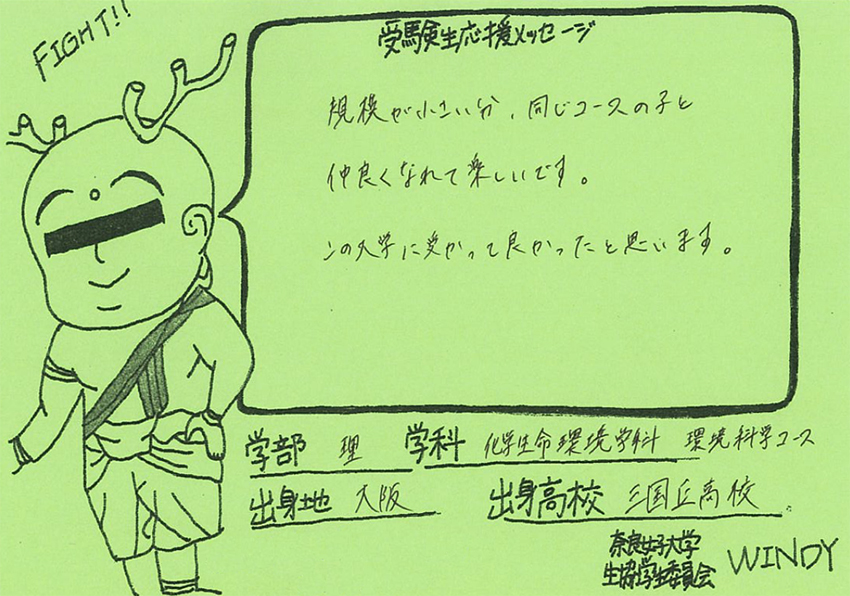 FIGHT!!
受験生応援メッセージ
規模が小さい分、同じコースの子と
仲良くなれて楽しいです。
この大学に受かって良かったと思います。
学部 理 学科 化学生命環境学科 環境科学コース
出身地 大阪 出身高校 三国丘高校
奈良女子大学
生協学生委員会 WINDY